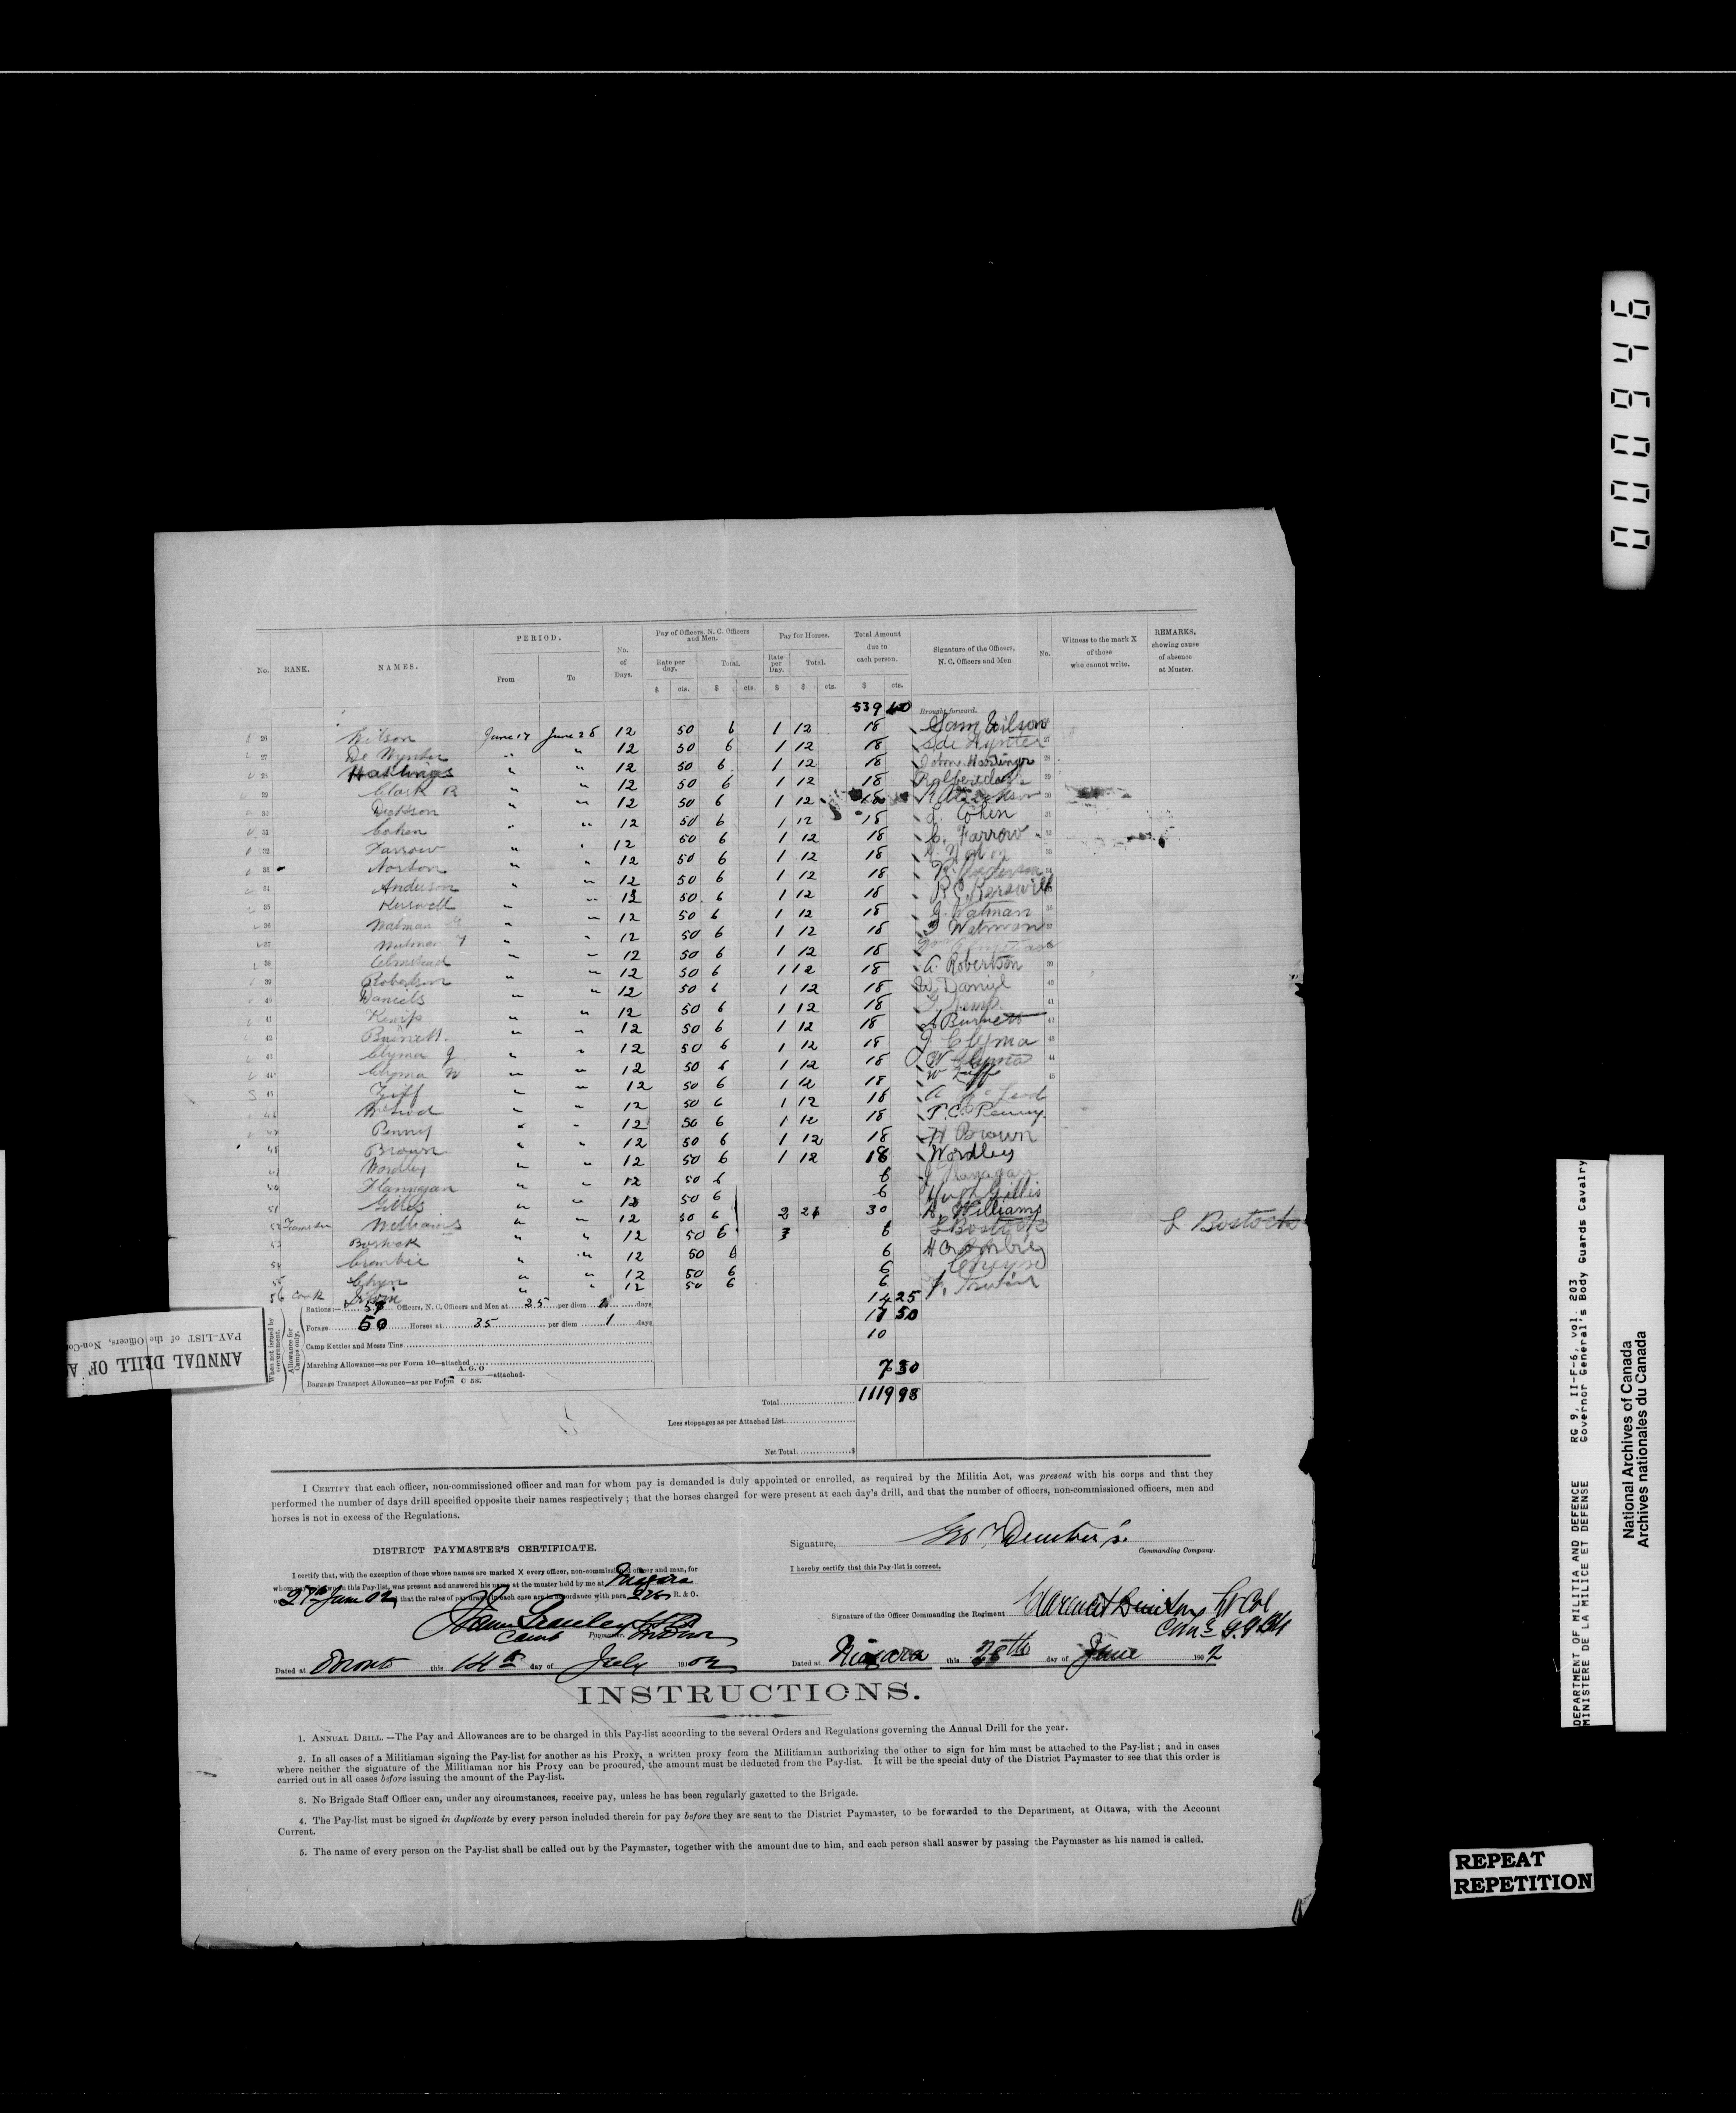 0000946
No. RANK. NAMES. PERIOD. From To No. of Days. Pay of Officers, N. C. Officers and Men. Rate per day. Total. Pay for Horses. Rate per Day. Total. Total Amount due to each person. Signature of the Officers, N. C. Officers and Men No. Witness to the mark X of those who cannot write. REMARKS, showing cause of absence at Muster.
$ cts. $ cts. $ $ cts. $ cts.
539 40 Brought forward.
26 Wilson June 17 June 28 12 50 6 1 12 18 Sam Wilson
27 De Wynter " " 12 50 6 1 12 18 S de Wynter 27
28 Hastings " " 12 50 6 1 12 18 John Hastings 28
29 Clark R " " 12 50 6 1 12 18 29
30 Dickson " " 12 50 6 1 12 18 30
31 Cohen " " 12 50 6 1 12 18 J. Cohen 31
32 Farrow " " 12 50 6 1 12 18 C. Farrow 32
33 Norton " " 12 50 6 1 12 18 33
34 Anderson " " 12 50 6 1 12 18 Anderson 34
35 Kerswell " " 12 50 6 1 12 18 R. C. Kerswill
36 Watman G " " 12 50 6 1 12 18 G. Watman 36
37 Watman " " 12 50 6 1 12 18 Watman 37
38 Olmstead " " 12 50 6 1 12 18 Olmstead
39 Robertson " " 12 50 6 1 12 18 A. Robertson 39
40 Daniels " " 12 50 6 1 12 18 W Daniel 40
41 Kemp " " 12 50 6 1 12 18 Kemp 41
42 Burnett " " 12 50 6 1 12 18 A Burnett 42
43 Clyma J " " 12 50 6 1 12 18 J Clyma 43
44 Clyma W " " 12 50 6 1 12 18 W Clyma 44
45 Tiff " " 12 50 6 1 12 18 W Tiff 45
46 McLeod " " 12 50 6 1 12 18 A McLeod
47 Penny " " 12 50 6 1 12 18 T. C. Penny
48 Brown " " 12 50 6 1 12 18 H Brown
49 Wordley " " 12 50 6 1 12 18 Wordley
50 Flannagan " " 12 50 6 6 J Flanagan
51 Gillis " " 12 50 6 6 Hugh Gillis
52 Teamster Williams " " 12 50 6 2 24 30 A. Williams
53 Bostock " " 12 50 6 6 L Bostock L Bostock
54 Crombie " " 12 50 6 6 H Crombie
55 Cheyn " " 12 50 6 6 Cheyne
56 Cook Irwin " " 12 50 6 6
When not issued by Government. Allowance for Camps only.
Rations:— 57 Officers, N. C. Officers and Men at 25 per diem 1 days 14 25
Forage 50 Horses at 35 per diem 1 days 17 50
Camp Kettles and Mess Tins 10
Marching Allowance—as per Form 10—attached
Baggage Transport Allowance—as per Form A. G. O C 58. —attached. 7 30
Total 1119 98
Less stoppages as per Attached List
Net Total $
I CERTIFY that each officer, non-commissioned officer and man for whom pay is demanded is duly appointed or enrolled, as required by the Militia Act, was present with his corps and that they
performed the number of days drill specified opposite their names respectively; that the horses charged for were present at each day's drill, and that the number of officers, non-commissioned officers, men and
horses is not in excess of the Regulations.
Signature,
Commanding Company.
DISTRICT PAYMASTER'S CERTIFICATE.
I certify that, with the exception of those whose names are marked X every officer, non-commissioned officer and man, for
whom pay is drawn in this Pay-list, was present and answered his name at the muster held by me at Niagara
27th June 02 that the rates of pay drawn in each case are in accordance with para. R. & O.
Camp Paymaster,
Dated at Toronto this 14th day of July 1902
I hereby certify that this Pay-list is correct.
Signature of the Officer Commanding the Regiment Clarence Denison Lt Col
Comg G.G.B.G.
Dated at Niagara this 28th day of June 1902
INSTRUCTIONS.
1. ANNUAL DRILL.—The Pay and Allowances are to be charged in this Pay-list according to the several Orders and Regulations governing the Annual Drill for the year.
2. In all cases of a Militiaman signing the Pay-list for another as his Proxy, a written proxy from the Militiaman authorizing the other to sign for him must be attached to the Pay-list; and in cases
where neither the signature of the Militiaman nor his Proxy can be procured, the amount must be deducted from the Pay-list. It will be the special duty of the District Paymaster to see that this order is
carried out in all cases before issuing the amount of the Pay-list.
3. No Brigade Staff Officer can, under any circumstances, receive pay, unless he has been regularly gazetted to the Brigade.
4. The Pay-list must be signed in duplicate by every person included therein for pay before they are sent to the District Paymaster, to be forwarded to the Department, at Ottawa, with the Account
Current.
5. The name of every person on the Pay-list shall be called out by the Paymaster, together with the amount due to him, and each person shall answer by passing the Paymaster as his named is called.
ANNUAL DRILL OF A
PAY-LIST of the Officers, Non-Co
DEPARTMENT OF MILITIA AND DEFENCE RG 9, II-F-6, vol. 203
MINISTERE DE LA MILICE ET DEFENSE Governor General's Body Guards Cavalry
National Archives of Canada
Archives nationales du Canada
REPEAT
REPETITION